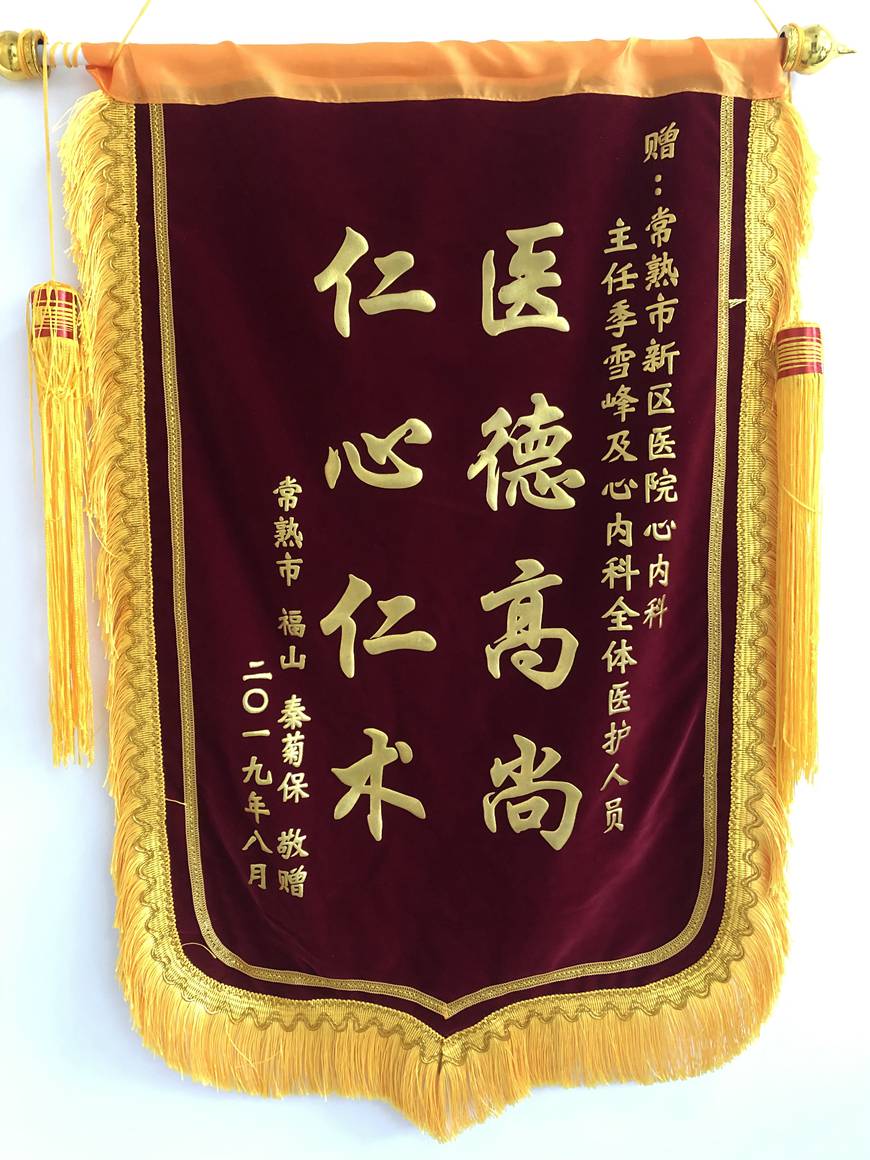 赠：常熟市新区医院心内科
主任季雪峰及心内科全体医护人员
医德高尚
仁心仁术
常熟市 福山 秦菊保 敬赠
二〇一九年八月